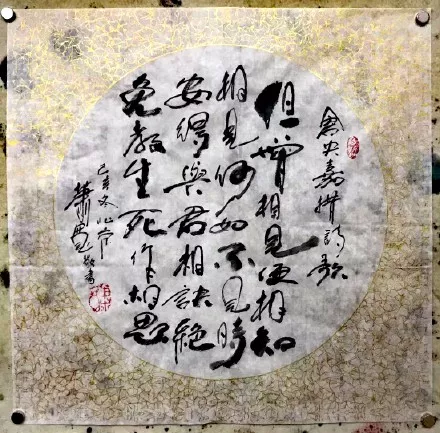 倉央嘉措詩歌
但曾相見便相知
相見何如不見時
安得與君相訣絕
免教生死作相思
己亥冬